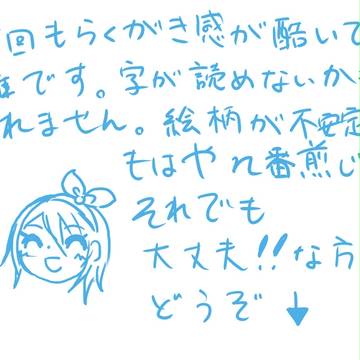 回もらくがき感が酷いで
です。字が読めないか
れません。絵柄が不安定
もはやn番煎じ
それでも
大丈夫!!な方
どうぞ↓